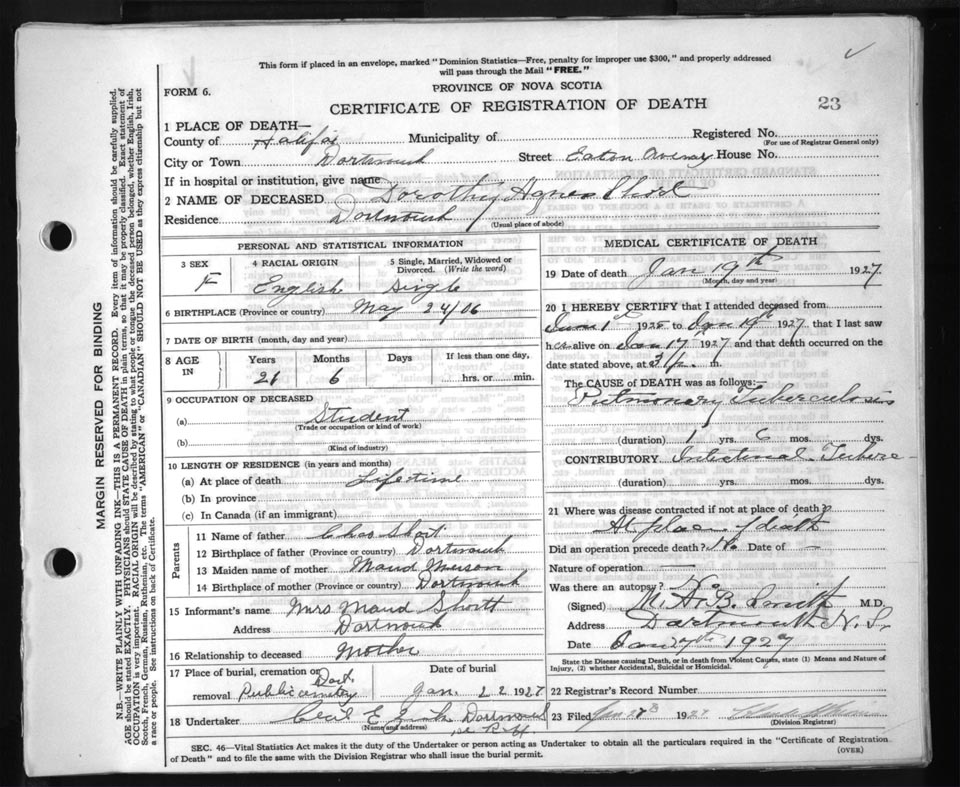 This form if placed in an envelope, marked "Dominion Statistics—Free, penalty for improper use $300," and properly addressed
will pass through the Mail "FREE."
FORM 6.
PROVINCE OF NOVA SCOTIA
CERTIFICATE OF REGISTRATION OF DEATH
23
1 PLACE OF DEATH—
County of Halifax Municipality of Registered No.
(For use of Registrar General only)
City or Town Dartmouth Street Eaton Avenue House No.
If in hospital or institution, give name
2 NAME OF DECEASED Dorothy Agnes Short
Residence Dartmouth
(Usual place of abode)
PERSONAL AND STATISTICAL INFORMATION
3 SEX 4 RACIAL ORIGIN 5 Single, Married, Widowed or
Divorced. (Write the word)
F English Single
6 BIRTHPLACE (Province or country) May 24/06
7 DATE OF BIRTH (month, day and year)
8 AGE IN Years Months Days If less than one day,
6 hrs. or min.
9 OCCUPATION OF DECEASED
(a) Student
(Trade or occupation or kind of work)
(b)
(Kind of industry)
10 LENGTH OF RESIDENCE (in years and months)
(a) At place of death Lifetime
(b) In province
(c) In Canada (if an immigrant)
Parents
11 Name of father Chas Short
12 Birthplace of father (Province or country) Dartmouth
13 Maiden name of mother Maud
14 Birthplace of mother (Province or country) Dartmouth
15 Informant's name Mrs Maud Shortt
Address Dartmouth
16 Relationship to deceased Mother
17 Place of burial, cremation or Dart. Date of burial
removal Public cemetry Jan 22 1927
18 Undertaker Cecil E. Dartmouth
(Name and address)
MEDICAL CERTIFICATE OF DEATH
19 Date of death Jan 19th 1927
(Month, day and year)
20 I HEREBY CERTIFY that I attended deceased from
June 1st 1925 to Jan 19th 1927, that I last saw
her alive on Jan 17 1927 and that death occurred on the
date stated above, at m.
The CAUSE OF DEATH was as follows:—
Pulmonary Tuberculosis
(duration) 1 yrs. 6 mos. dys.
CONTRIBUTORY Intestinal Tuberc-
(duration) yrs. mos. dys.
21 Where was disease contracted if not at place of death?
At place of death
Did an operation precede death? No Date of —
Nature of operation —
Was there an autopsy? No
(Signed) B. Smith M.D.
Address Dartmouth N.S.
Date Jan 27th 1927
State the Disease causing Death, or in death from Violent Causes, state (1) Means and Nature of
Injury, (2) whether Accidental, Suicidal or Homicidal.
22 Registrar's Record Number
23 Filed Jan 1927
(Division Registrar)
SEC. 46—Vital Statistics Act makes it the duty of the Undertaker or person acting as Undertaker to obtain all the particulars required in the "Certificate of Registration
of Death" and to file the same with the Division Registrar who shall issue the burial permit.
(OVER)
MARGIN RESERVED FOR BINDING
N.B.—WRITE PLAINLY WITH UNFADING INK—THIS IS A PERMANENT RECORD. Every item of information should be carefully supplied.
AGE should be stated EXACTLY. PHYSICIANS should STATE CAUSE OF DEATH in plain terms, so that it may be properly classified. Exact statement of
OCCUPATION is very important. RACIAL ORIGIN will be described by stating to what people or tongue the deceased person belonged, whether English, Irish,
Scotch, French, German, Russian, Ruthenian, etc. The terms "AMERICAN" or "CANADIAN" SHOULD NOT BE USED as they express citizenship but not
a race or people. See instructions on back of Certificate.